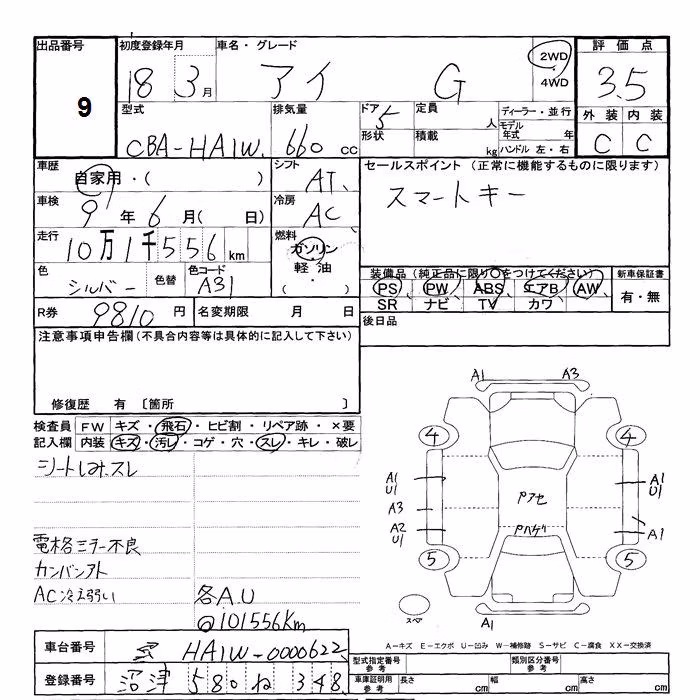 出品番号 9
初度登録年月 18 3月
車名・グレード アイ G
2WD 4WD
評価点 3.5
型式 CBA-HA1W.
排気量 660 cc
ドア 5 形状
定員 人 積載 kg
ディーラー・並行
モデル年式 年
ハンドル 左・右
外装 内装
C C
車歴 自家用・( )
シフト AT.
セールスポイント (正常に機能するものに限ります)
スマートキー
車検 9年6月( 日)
冷房 AC
走行 10万1千556km
燃料 ガソリン 軽油 ( ・ )
色 シルバー 色替 色コード A31
装備品 (純正品に限り○をつけてください)
PS PW ABS エアB AW
SR ナビ TV カワ
新車保証書
有・無
R券 9810円 名変期限 月 日
後日品
注意事項申告欄 (不具合内容等は具体的に記入して下さい)
修復歴 有 〔箇所 〕
検査員記入欄
FW キズ・飛石・ヒビ割・リペア跡・×要
内装 キズ・汚レ・コゲ・穴・スレ・キレ・破レ
シートしみ.スレ
電格ミラー不良
カンバンアト
AC冷え弱い
各A.U
@101556Km
A1 A3
4 4
A1 U1
A3
A2 U1
A1 U1
A1
5 5
Pアセ
Pハゲ
スペア
A1
A-キズ E-エクボ U-凹み W-補修跡 S-サビ C-腐食 XX-交換済
車台番号 HA1W-0000622
登録番号 沼津 580 ね 348
型式指定番号 参考
類別区分番号 参考
車庫証明用 参考 長さ cm 幅 cm 高さ cm